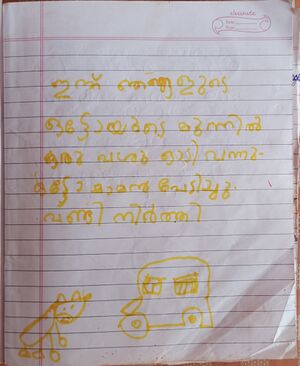 classmate
Date
Page
ഇന്ന് ഞങ്ങളുടെ
ഓട്ടോയുടെ മുന്നിൽ
ഒരു പശു ഓടി വന്നു.
ഓട്ടോ മാമൻ പേടിച്ചു.
വണ്ടി നിർത്തി